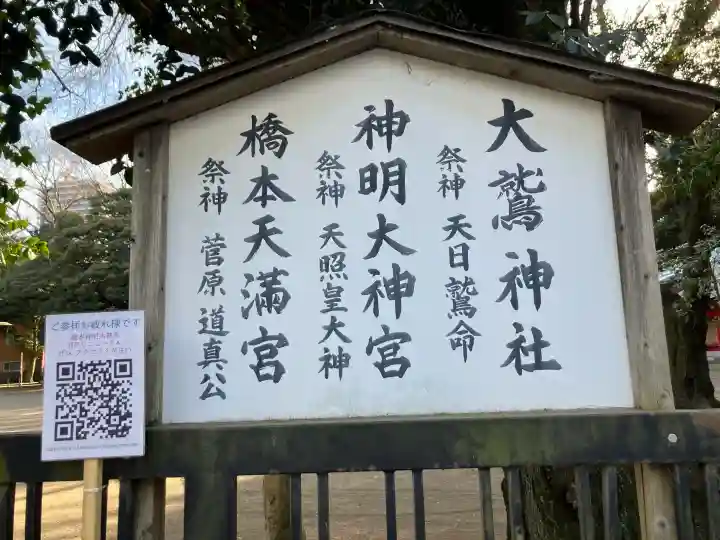 大鷲神社
祭神 天日鷲命
神明大神宮
祭神 天照皇大神
橋本天満宮
祭神 菅原道真公
ご参拝お疲れ様です